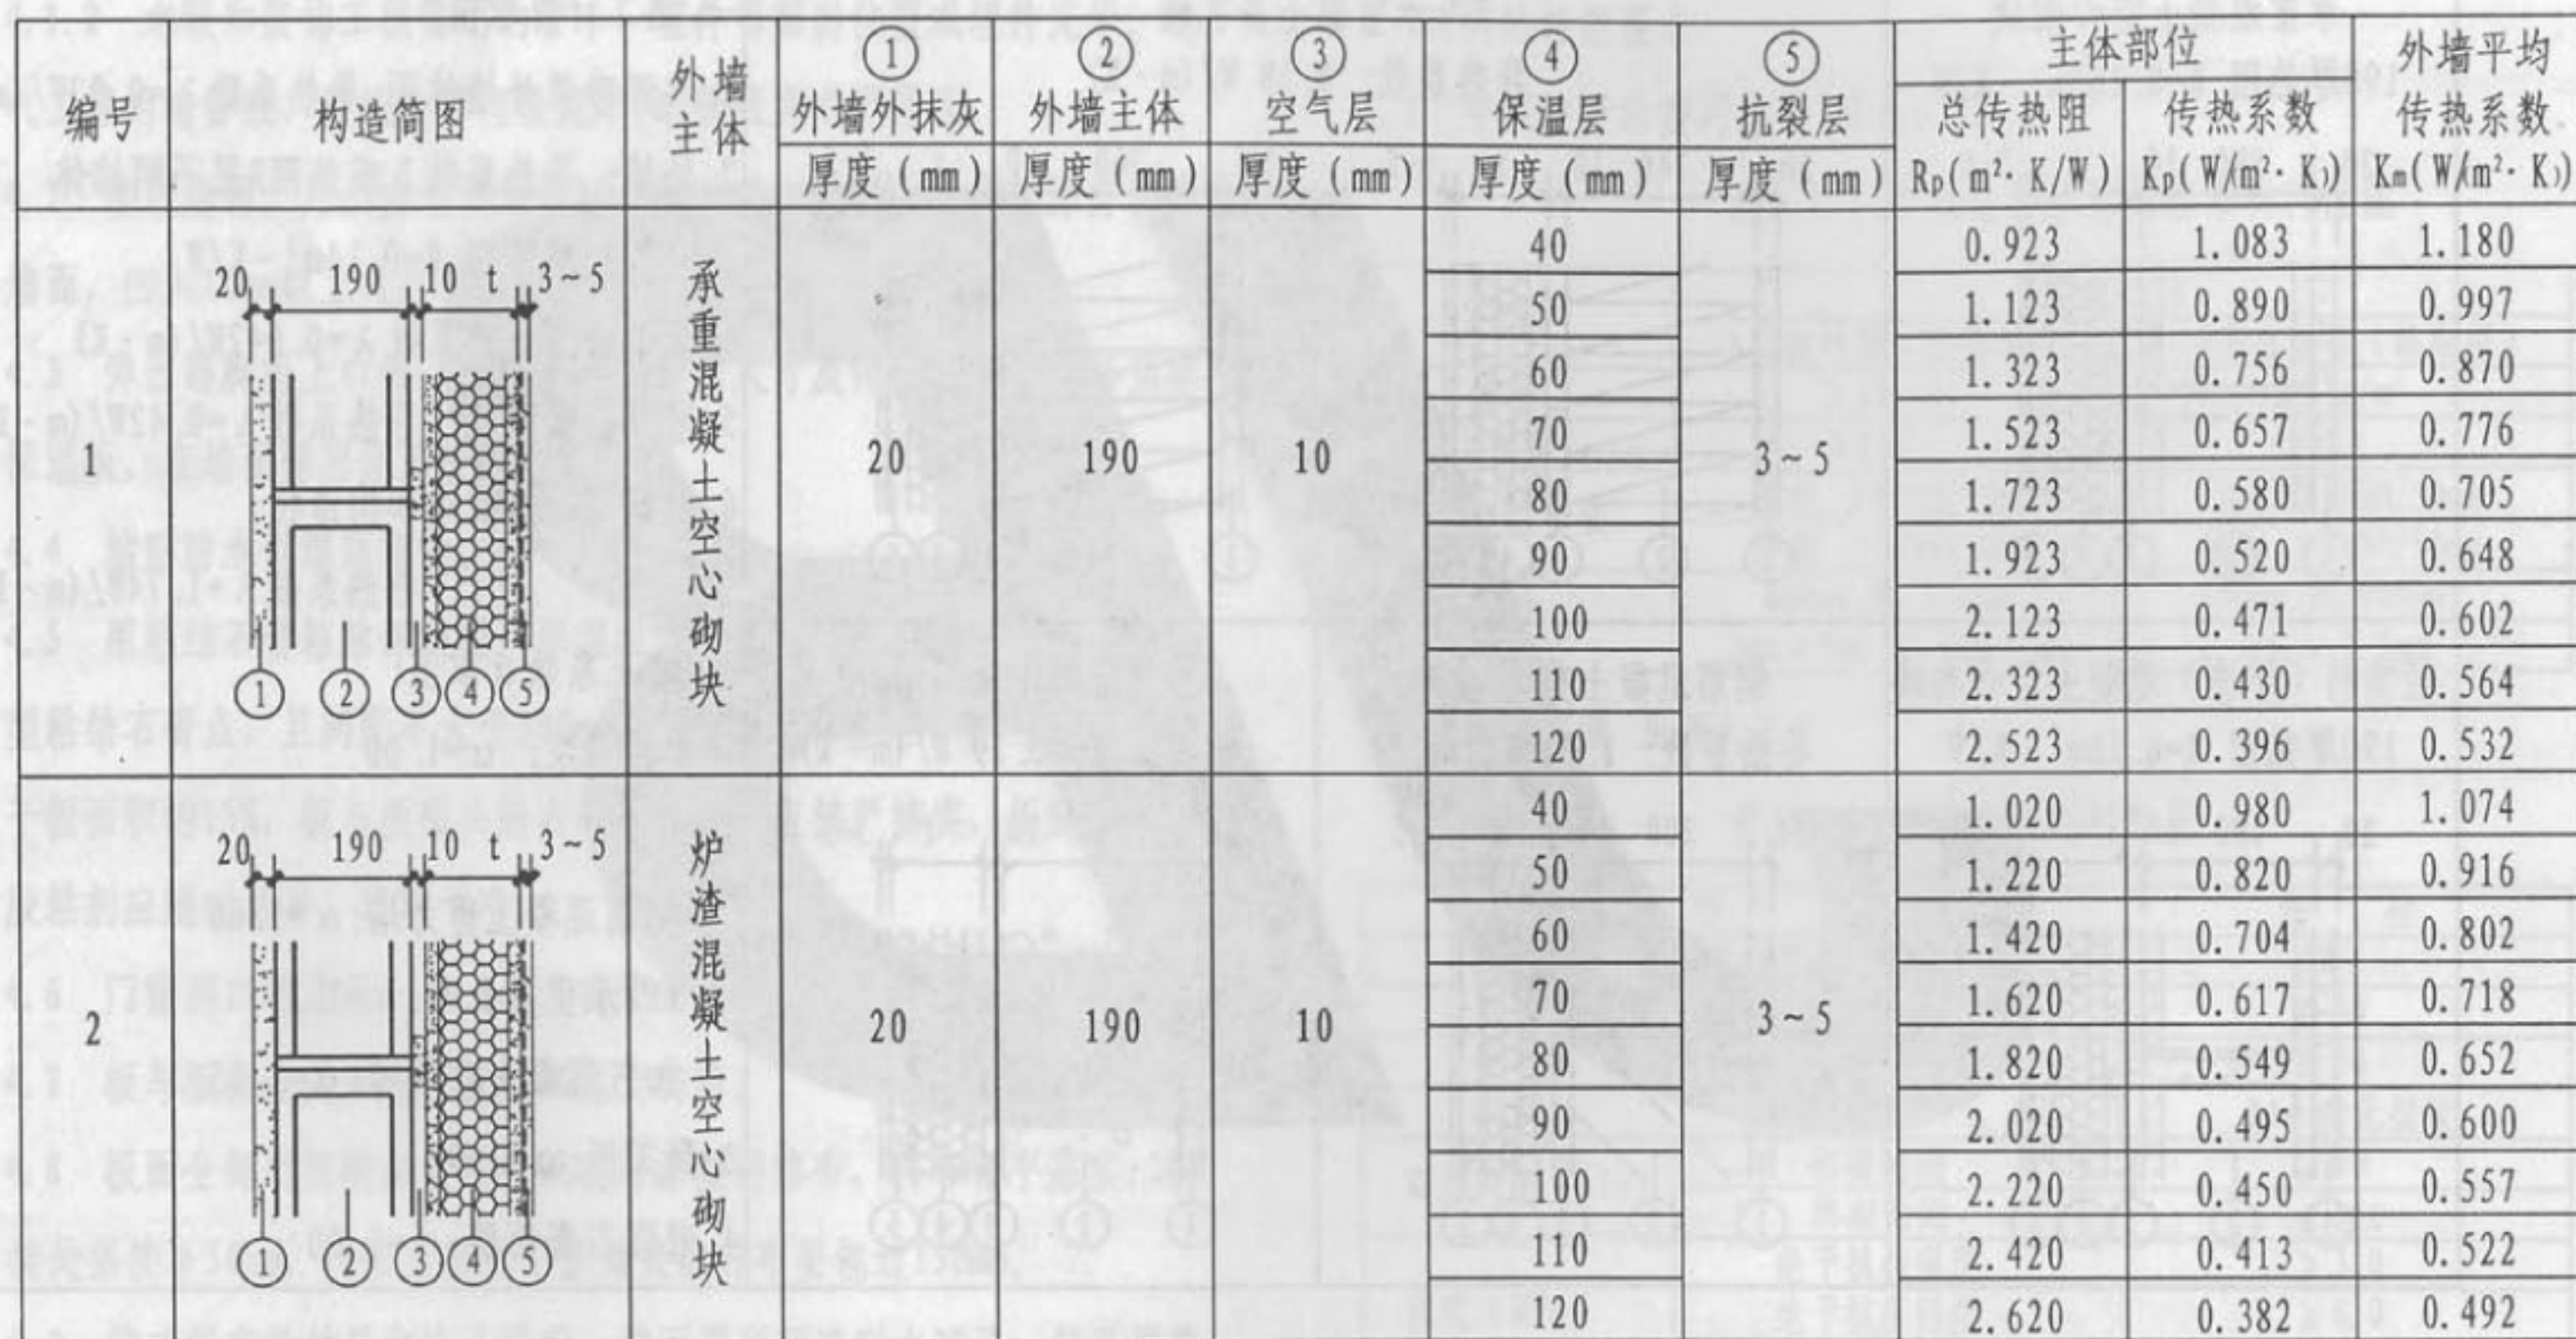 编号 构造简图 外墙主体 ① 外墙外抹灰 厚度(mm) ② 外墙主体 厚度(mm) ③ 空气层 厚度(mm) ④ 保温层 厚度(mm) ⑤ 抗裂层 厚度(mm) 主体部位 外墙平均传热系数 Km(W/(m²·K))
总传热阻 Rp(m²·K/W) 传热系数 Kp(W/(m²·K))
1
20 190 10 t 3~5
① ② ③ ④ ⑤
承重混凝土空心砌块
20 190 10 3~5
40 0.923 1.083 1.180
50 1.123 0.890 0.997
60 1.323 0.756 0.870
70 1.523 0.657 0.776
80 1.723 0.580 0.705
90 1.923 0.520 0.648
100 2.123 0.471 0.602
110 2.323 0.430 0.564
120 2.523 0.396 0.532
2
20 190 10 t 3~5
① ② ③ ④ ⑤
炉渣混凝土空心砌块
20 190 10 3~5
40 1.020 0.980 1.074
50 1.220 0.820 0.916
60 1.420 0.704 0.802
70 1.620 0.617 0.718
80 1.820 0.549 0.652
90 2.020 0.495 0.600
100 2.220 0.450 0.557
110 2.420 0.413 0.522
120 2.620 0.382 0.492